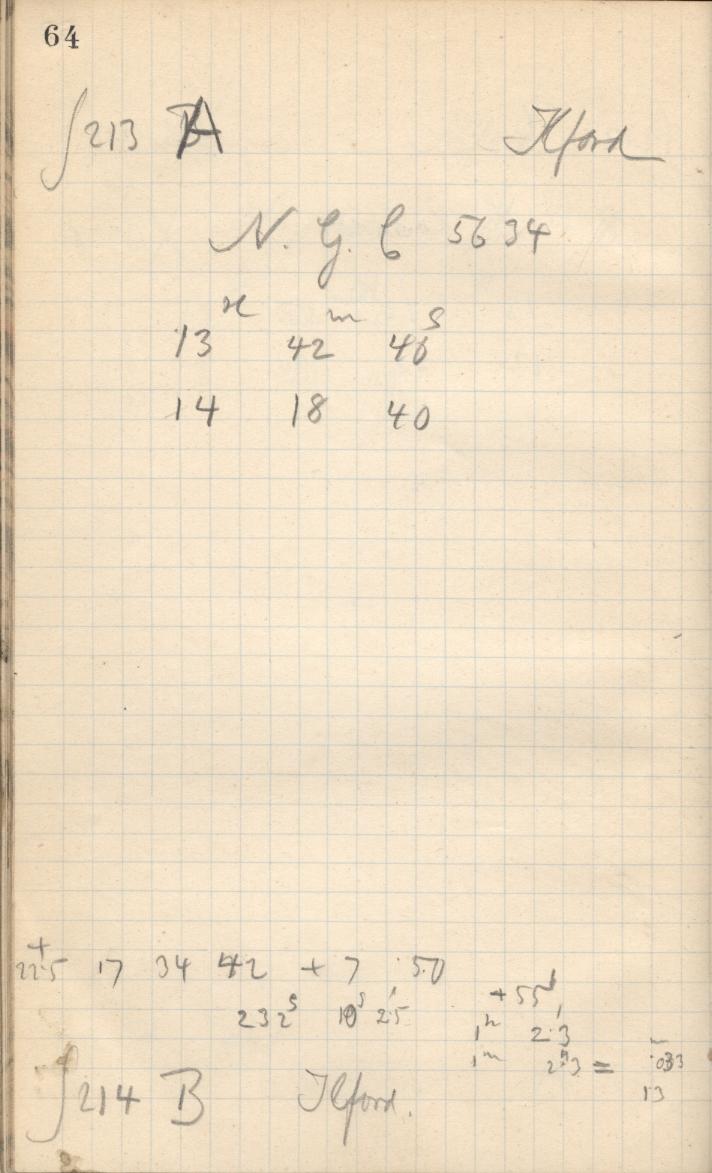 64
∫213 A Ilford
N. G. C 5634
13 h 42 m 46 s
14 18 40
+
22.5 17 34 42 + 7 50
232s 10s 2.5' +55'
1h 2.3'
1m 2".3 = .033
13
∫214 B Ilford.